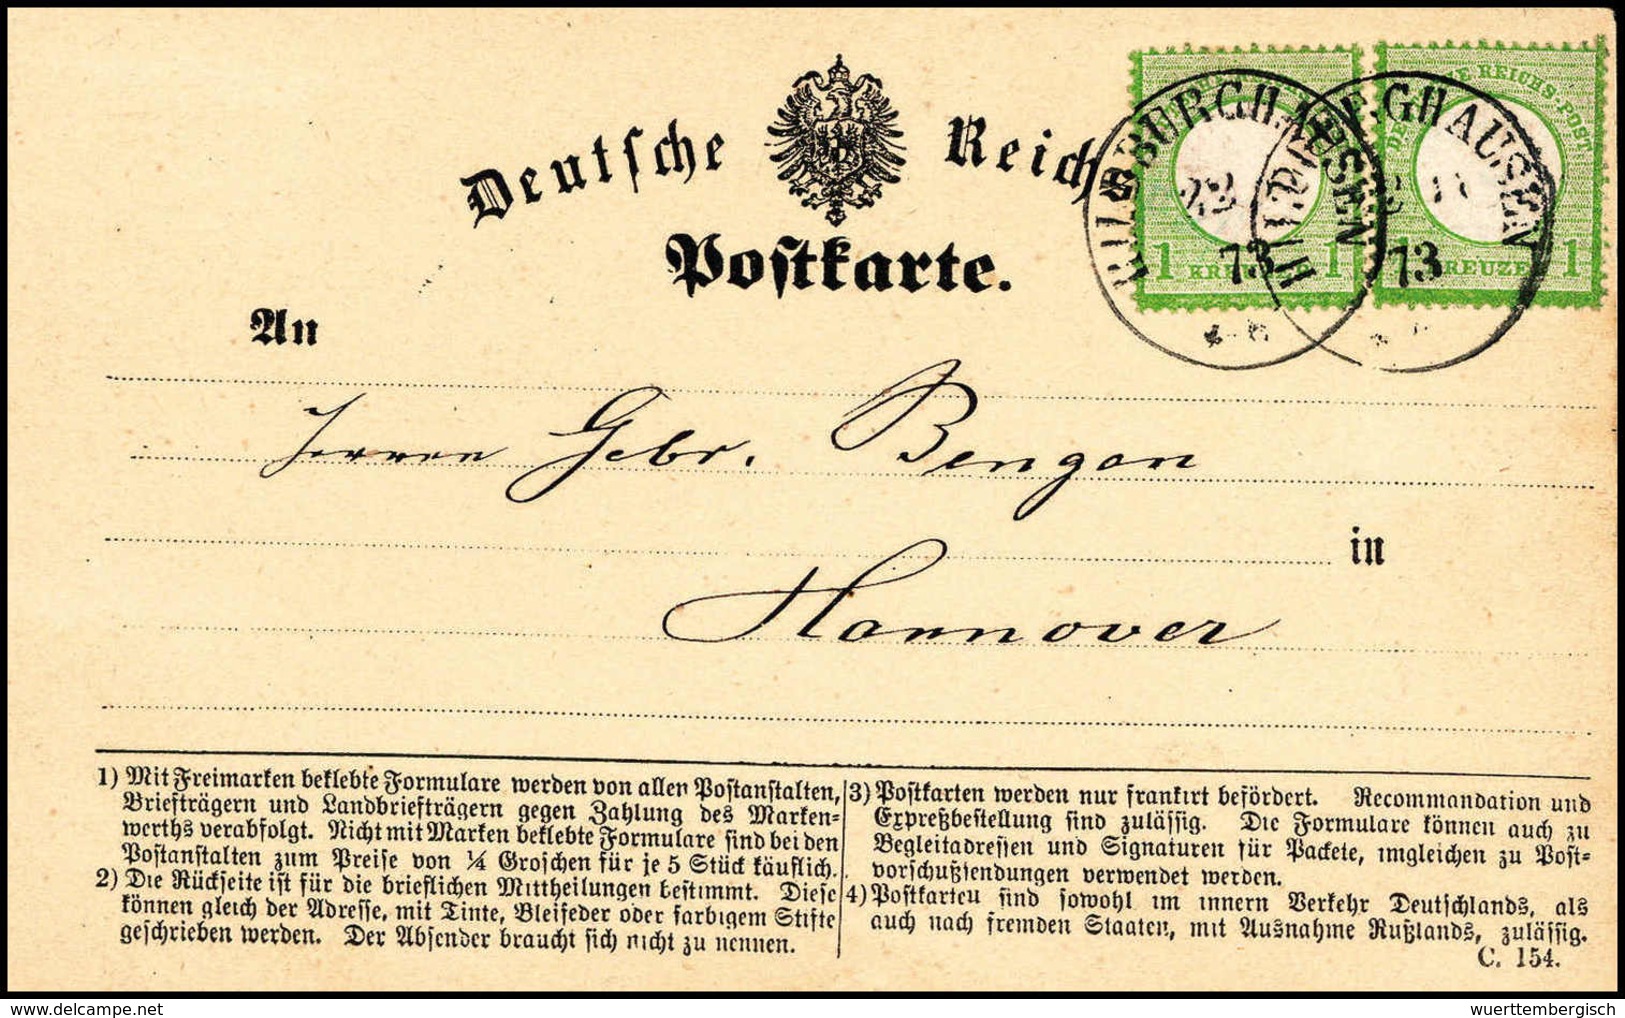 Deutsche Reichs-
Postkarte.
HILDBURGHAUSEN
73
HILDBURGHAUSEN
73
DEUTSCHE REICHS-POST
1 KREUZER 1
1 KREUZER 1
An
Herren Gebr. Bengen
in
Hannover
1) Mit Freimarken beklebte Formulare werden von allen Postanstalten,
Briefträgern und Landbriefträgern gegen Zahlung des Marken-
werths verabfolgt. Nicht mit Marken beklebte Formulare sind bei den
Postanstalten zum Preise von ¼ Groschen für je 5 Stück käuflich.
2) Die Rückseite ist für die brieflichen Mittheilungen bestimmt. Diese
können gleich der Adresse, mit Tinte, Bleifeder oder farbigem Stifte
geschrieben werden. Der Absender braucht sich nicht zu nennen.
3) Postkarten werden nur frankirt befördert. Recommandation und
Expreßbestellung sind zulässig. Die Formulare können auch zu
Begleitadressen und Signaturen für Packete, imgleichen zu Post-
vorschußsendungen verwendet werden.
4) Postkarten sind sowohl im innern Verkehr Deutschlands, als
auch nach fremden Staaten, mit Ausnahme Rußlands, zulässig.
C. 154.
delcampe.net
wuerttembergisch